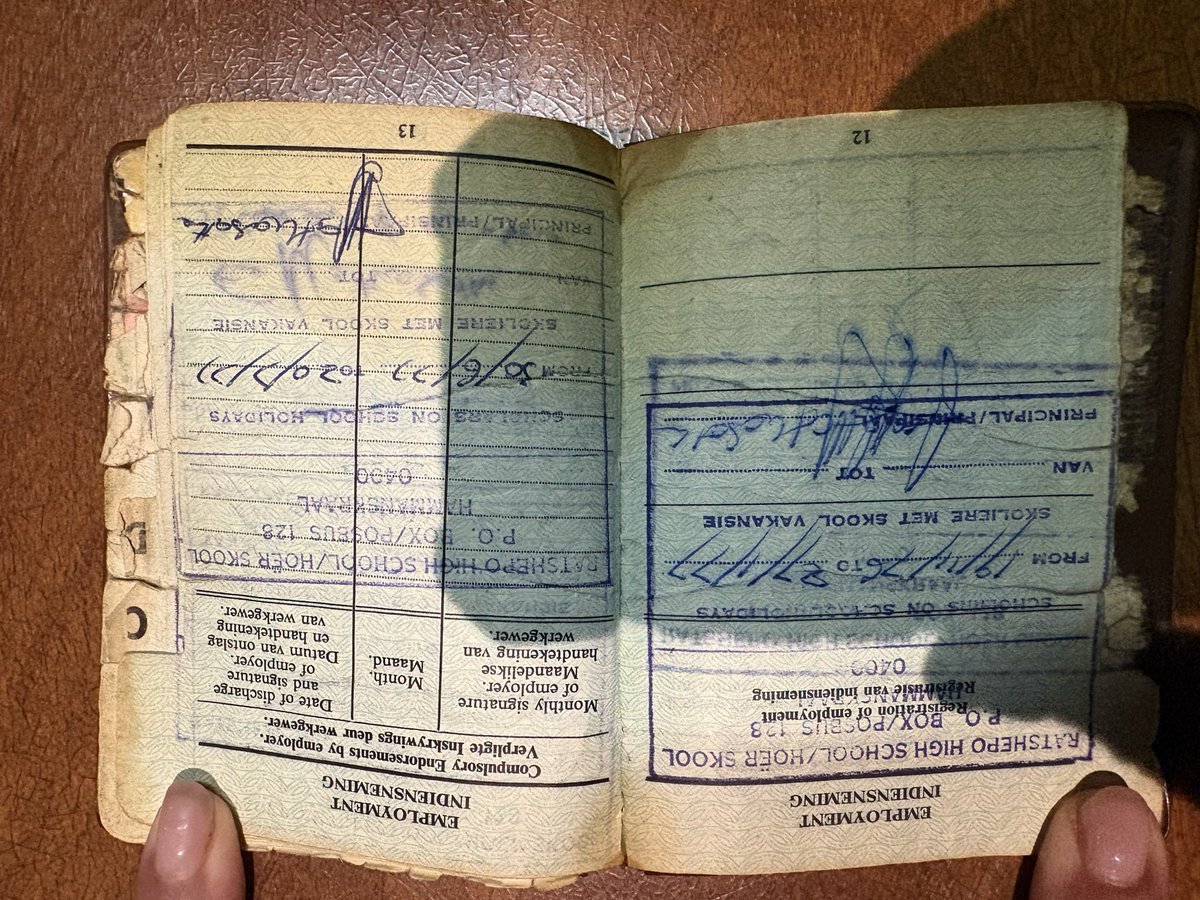 EMPLOYMENT
INDIENSNEMING
RATSHEPO HIGH SCHOOL/HOËR SKOOL
P.O. BOX/POSBUS 128
Registration of employment
HAMMANSKRAAL
Registrasie van indiensneming
0400
SCHOLARS ON SCHOOL HOLIDAYS
FROM TO
SKOLIERE MET SKOOL VAKANSIE
VAN TOT
PRINCIPAL/PRINSIPAAL
12
EMPLOYMENT
INDIENSNEMING
Compulsory Endorsements by employer.
Verpligte Inskrywings deur werkgewer.
Monthly signature
of employer.
Maandelikse
handtekening van
werkgewer.
Month.
Maand.
Date of discharge
and signature
of employer.
Datum van ontslag
en handtekening
van werkgewer.
RATSHEPO HIGH SCHOOL/HOËR SKOOL
P.O. BOX/POSBUS 128
HAMMANSKRAAL
0400
SCHOLARS ON SCHOOL HOLIDAYS
FROM 30/6/77 TO 20/7/77
SKOLIERE MET SKOOL VAKANSIE
VAN TOT
13
C